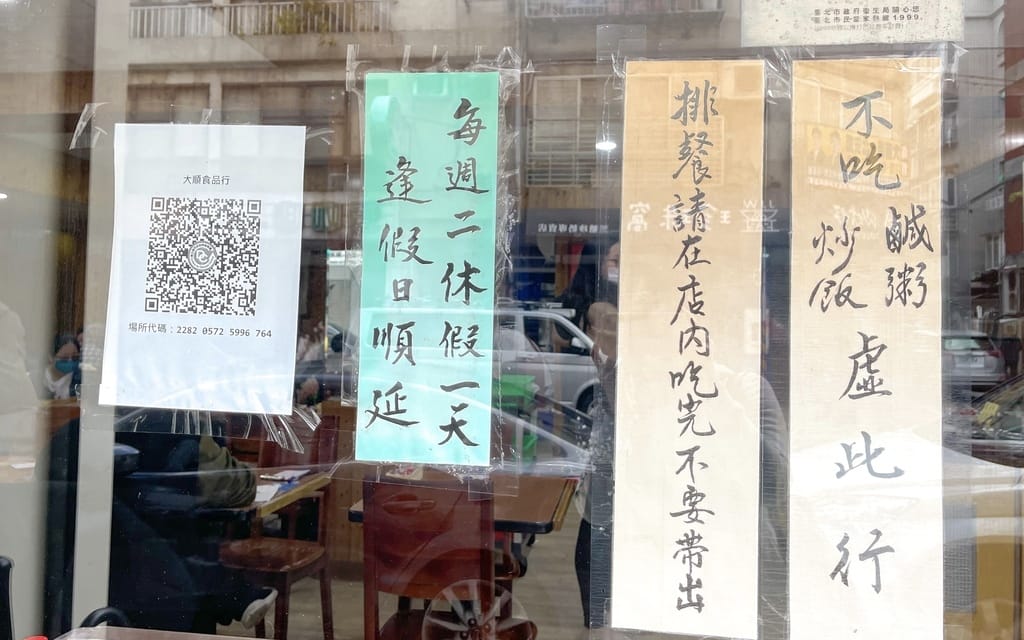 臺北市政府衛生局關心您
臺北市民當家熱線1999
大順食品行
場所代碼：2282 0572 5996 764
每週二休假一天
逢假日順延
排餐請在店內吃完不要帶出
不吃
鹹粥
炒飯
虛此行